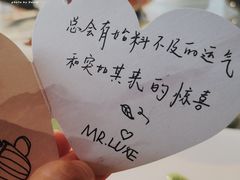 总会有始料不及的运气
和突如其来的惊喜
MR.LUXE